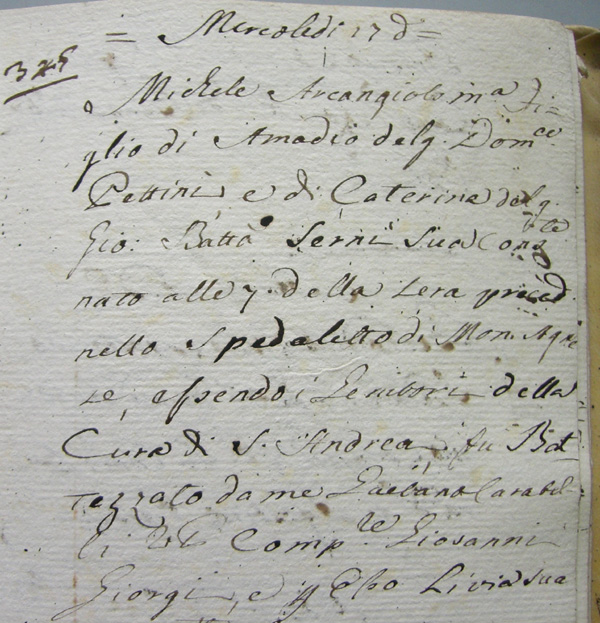 = Mercoledi 17 d =
325
Michele Arcangiolo ma Fi=
glio di Amadio del q. Domce
Pettini e di Caterina del q.
Gio: Batta Serni sua Conste
nato alle 7. della sera preced.
nello Spedaletto di Mon. Agne
se, essendo i Genitori della
Cura di S. Andrea, fu Bat
tezzato da me Gaetano Carabel
li Comp.re Giovanni
Giorgi, e p Esso Livia sua